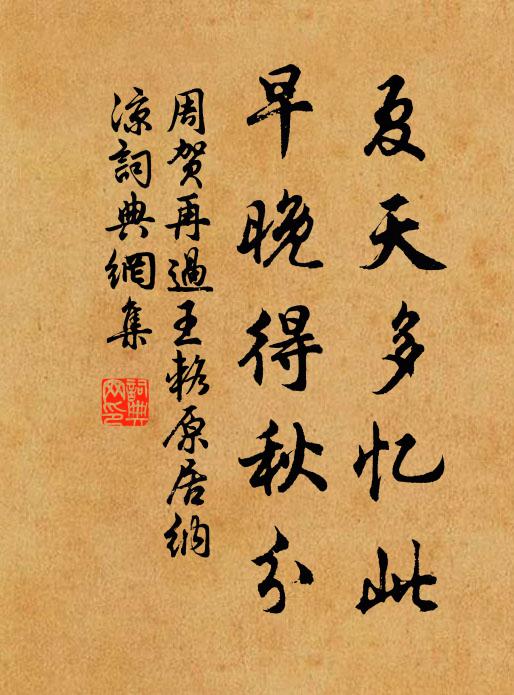 夏天多忆此
早晚得秋分
周贺再過王輅原居納
凉詞典網集
詞典网印